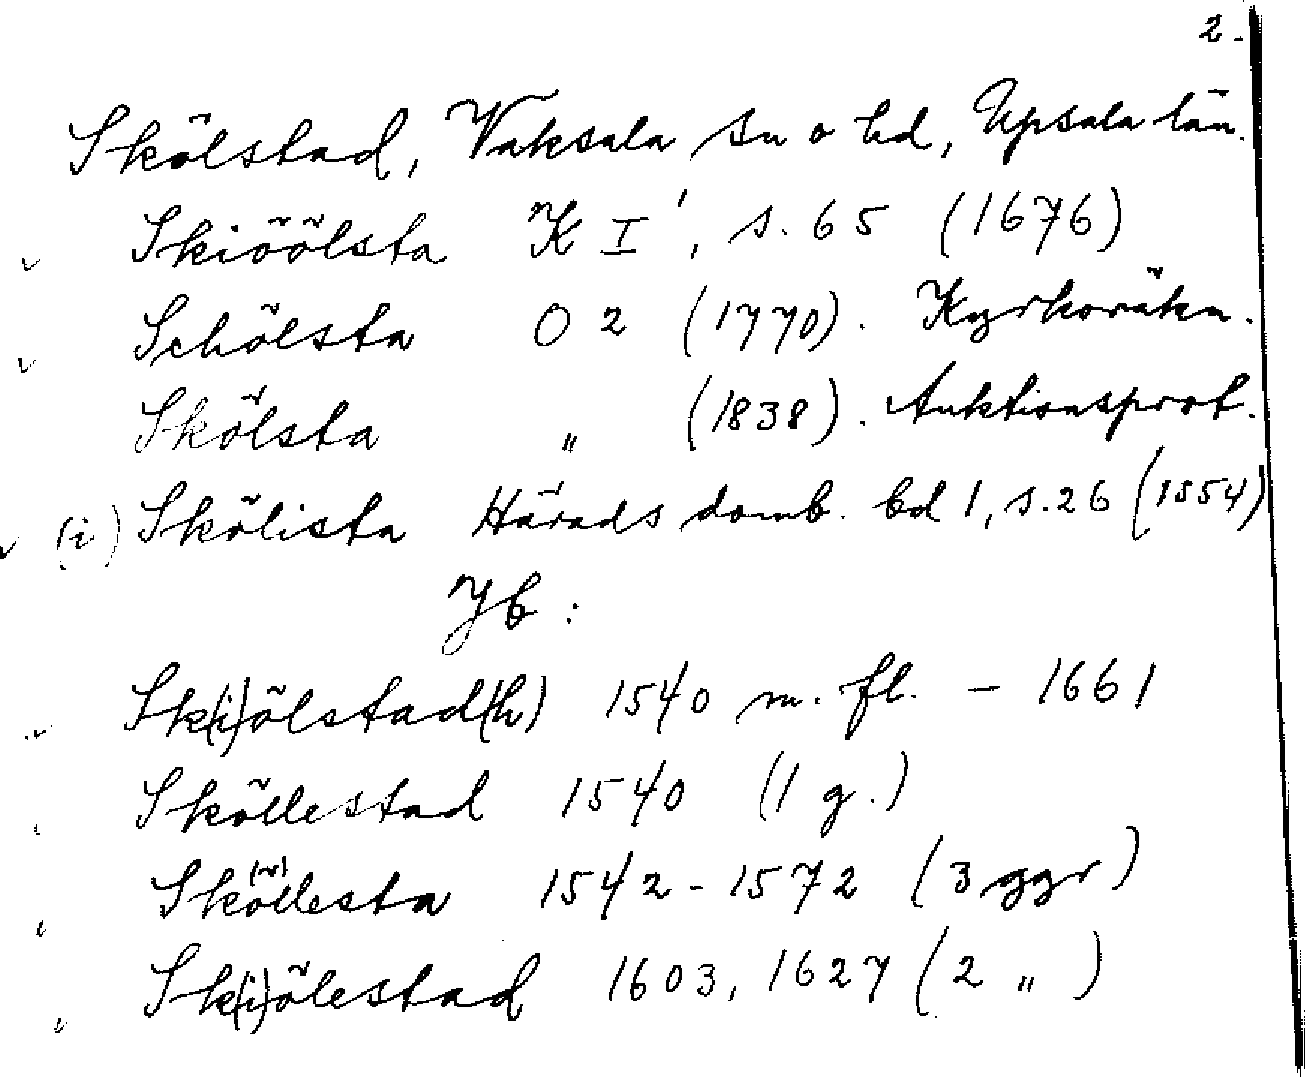 2.
Skölstad, Vaksala sn o hd, Upsala län.
Skiöölsta K I', s. 65 (1676)
Schölsta O 2 (1770). Kyrkoräkn.
Skölsta „ (1838). Auktionsprot.
(i) Skölista Härads domb. bd 1, s. 26 (1554)
Jb:
Sk(i)ölstad(h) 1540 m. fl. - 1661
Sköllestad 1540 (1 g.)
Sköllesta 1542-1572 (3 ggr)
Sk(i)ölestad 1603, 1627 (2 „ )